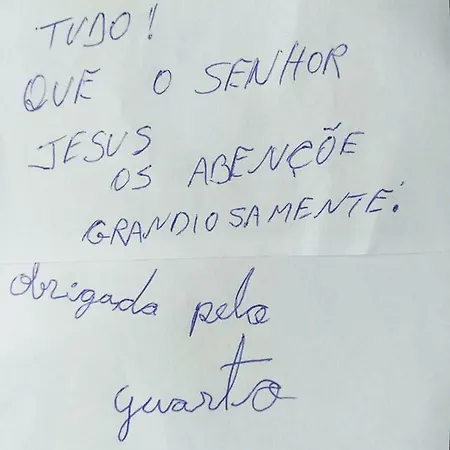 TUDO!
QUE O SENHOR
JESUS
OS ABENÇÕE
GRANDIOSAMENTE!
Obrigada pelo
quarto